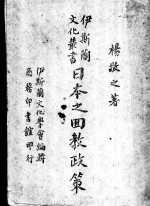 楊敬之著
伊斯蘭文化叢書
日本之回教政策
伊斯蘭文化學會編輯
商務印書館印行